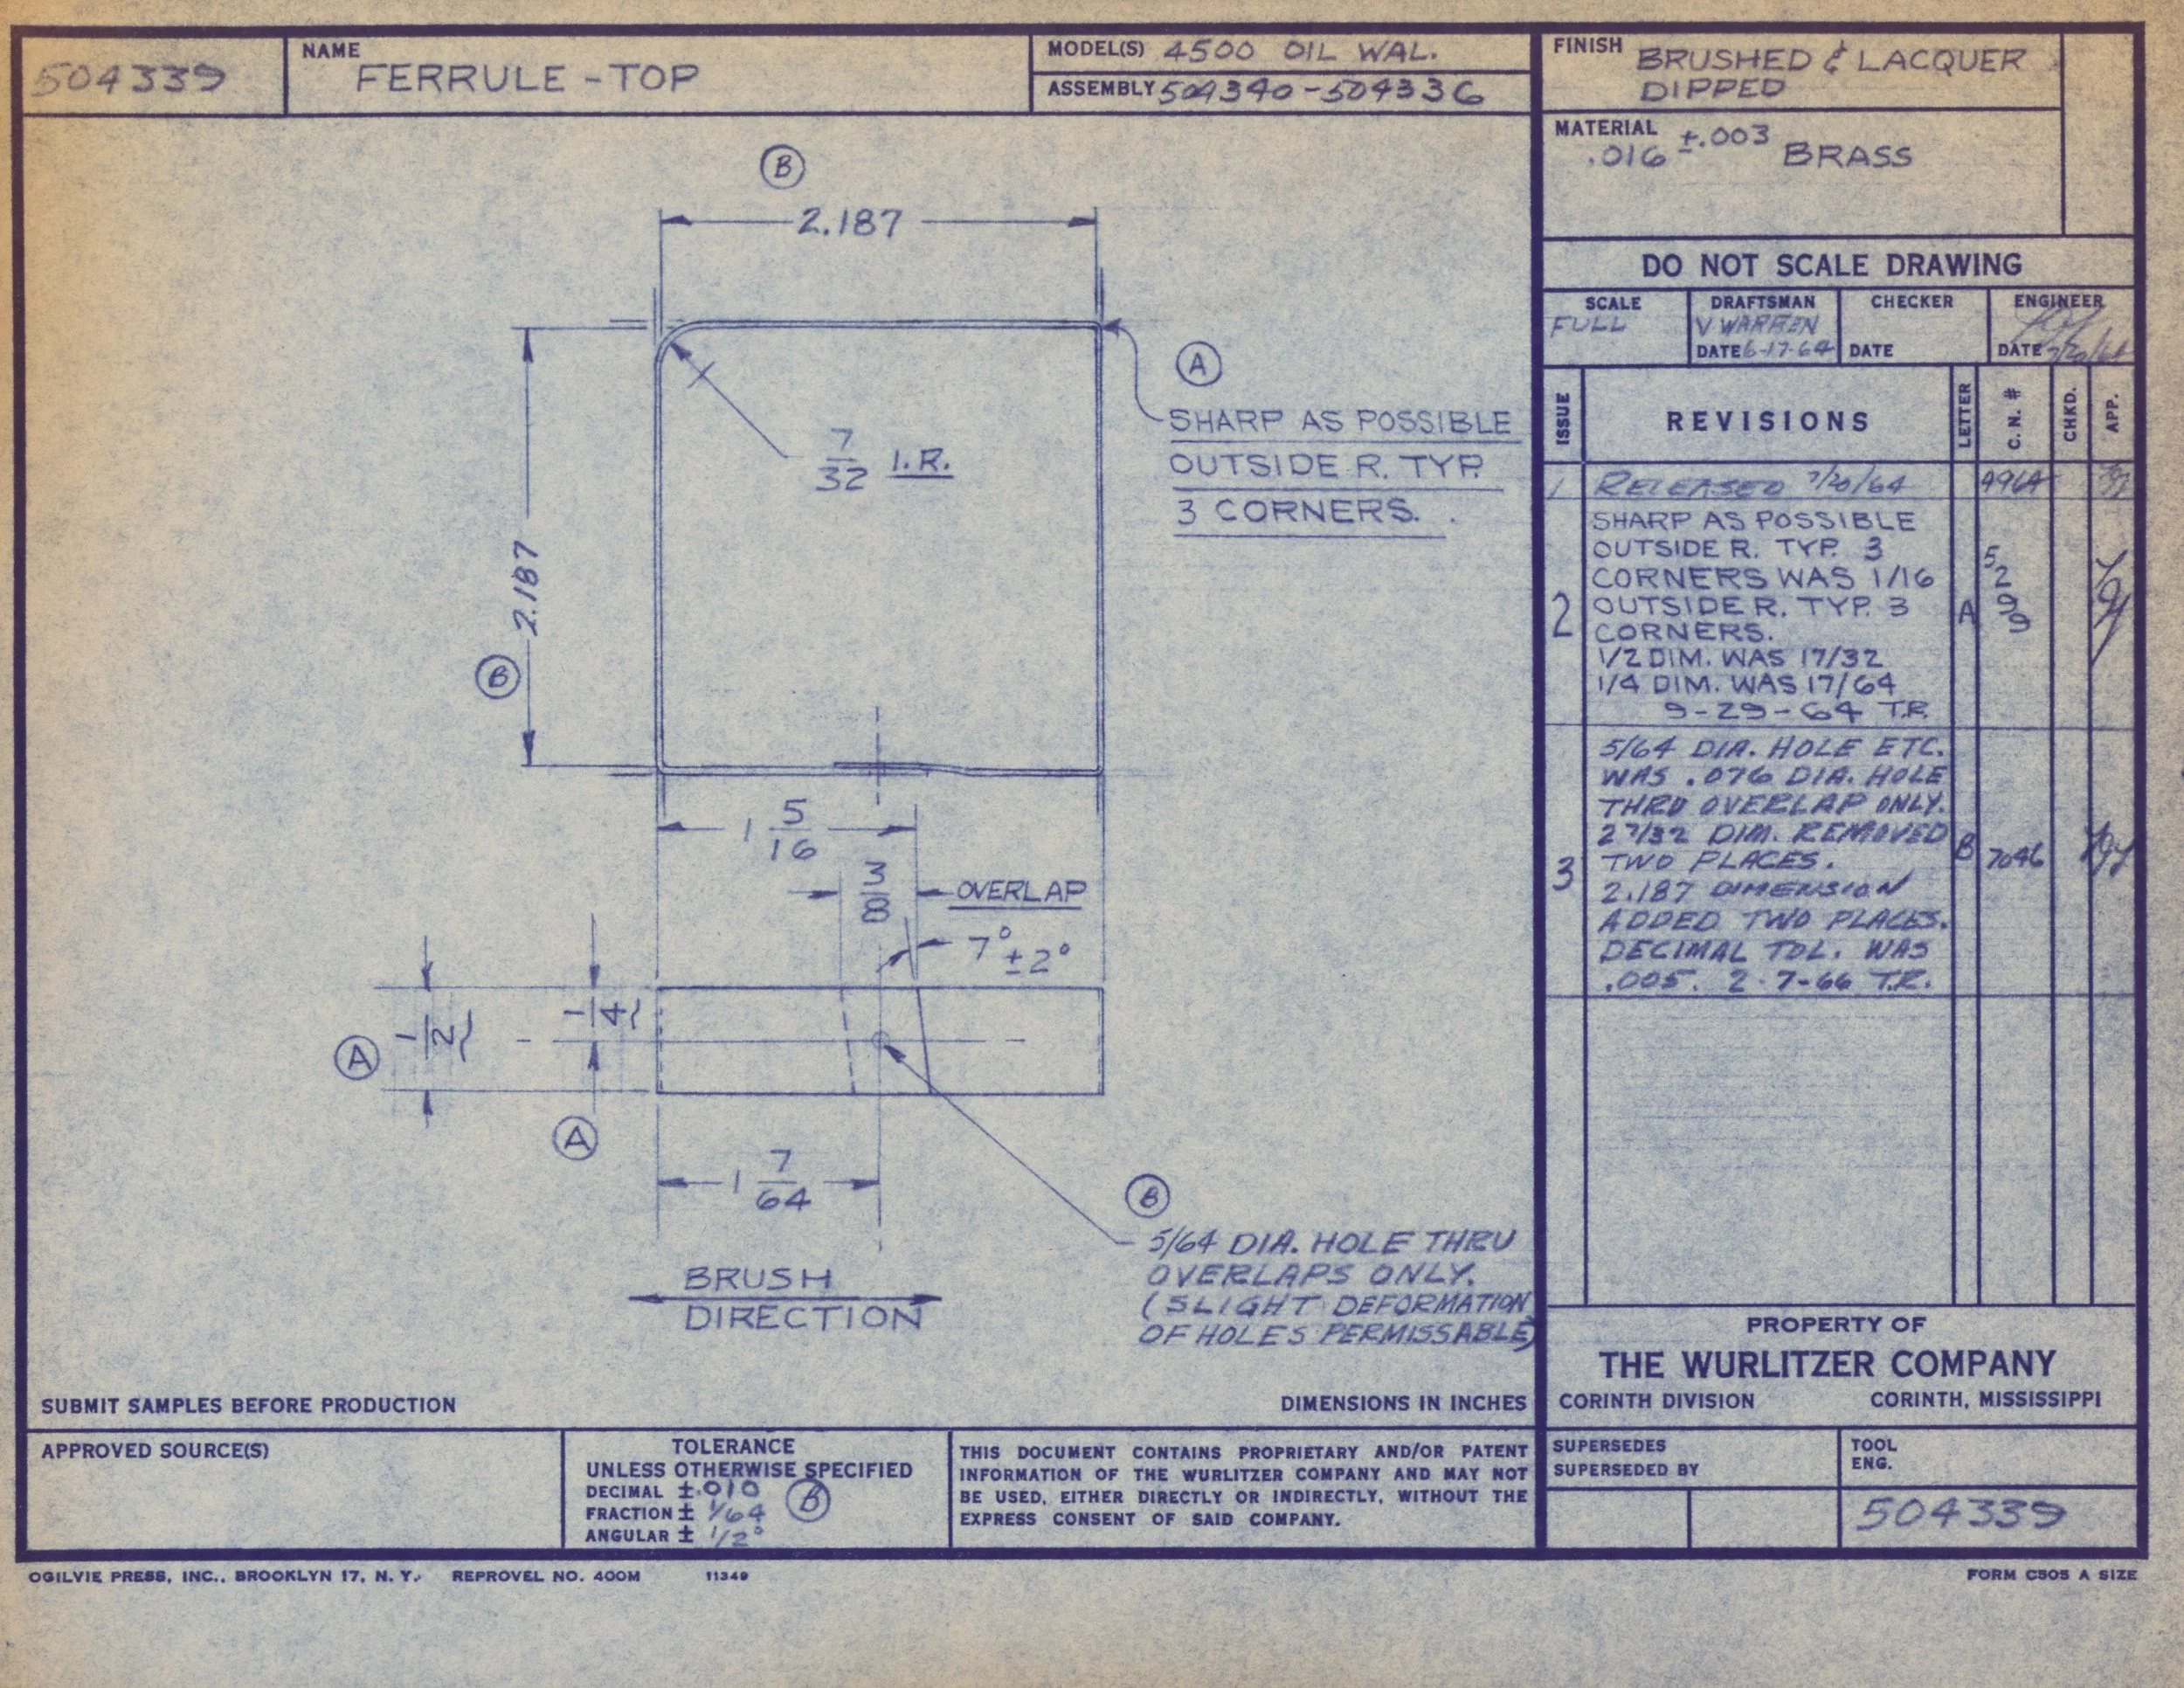 504339
NAME
FERRULE - TOP
MODEL(S) 4500 OIL WAL.
ASSEMBLY 504340-504336
FINISH BRUSHED & LACQUER
DIPPED
MATERIAL
.016 ±.003 BRASS
DO NOT SCALE DRAWING
SCALE
FULL
DRAFTSMAN
V WARREN
DATE 6-17-64
CHECKER
DATE
ENGINEER
DATE 7/20/64
ISSUE
REVISIONS
LETTER
C. N. #
CHKD.
APP.
1 RELEASED 7/20/64
2
SHARP AS POSSIBLE
OUTSIDE R. TYP. 3
CORNERS WAS 1/16
OUTSIDE R. TYP. 3
CORNERS.
1/2 DIM. WAS 17/32
1/4 DIM. WAS 17/64
9-29-64 T.R.
A
5299
3
5/64 DIA. HOLE ETC.
WAS .076 DIA. HOLE
THRU OVERLAP ONLY.
2 7/32 DIM. REMOVED
TWO PLACES.
2.187 DIMENSION
ADDED TWO PLACES.
DECIMAL TOL. WAS
.005. 2-7-66 T.R.
B
7046
B
2.187
A
SHARP AS POSSIBLE
OUTSIDE R. TYP.
3 CORNERS.
7/32 I.R.
2.187
B
1 5/16
3/8 OVERLAP
7° ±2°
1/2
A
1/4
A
1 7/64
B
5/64 DIA. HOLE THRU
OVERLAPS ONLY.
(SLIGHT DEFORMATION
OF HOLES PERMISSABLE)
BRUSH
DIRECTION
SUBMIT SAMPLES BEFORE PRODUCTION
DIMENSIONS IN INCHES
PROPERTY OF
THE WURLITZER COMPANY
CORINTH DIVISION CORINTH, MISSISSIPPI
APPROVED SOURCE(S)
TOLERANCE
UNLESS OTHERWISE SPECIFIED
DECIMAL ±.010
FRACTION ± 1/64
ANGULAR ± 1/2°
B
THIS DOCUMENT CONTAINS PROPRIETARY AND/OR PATENT
INFORMATION OF THE WURLITZER COMPANY AND MAY NOT
BE USED, EITHER DIRECTLY OR INDIRECTLY, WITHOUT THE
EXPRESS CONSENT OF SAID COMPANY.
SUPERSEDES
SUPERSEDED BY
TOOL
ENG.
504339
OGILVIE PRESS, INC., BROOKLYN 17, N. Y. REPROVEL NO. 400M 11349
FORM C505 A SIZE